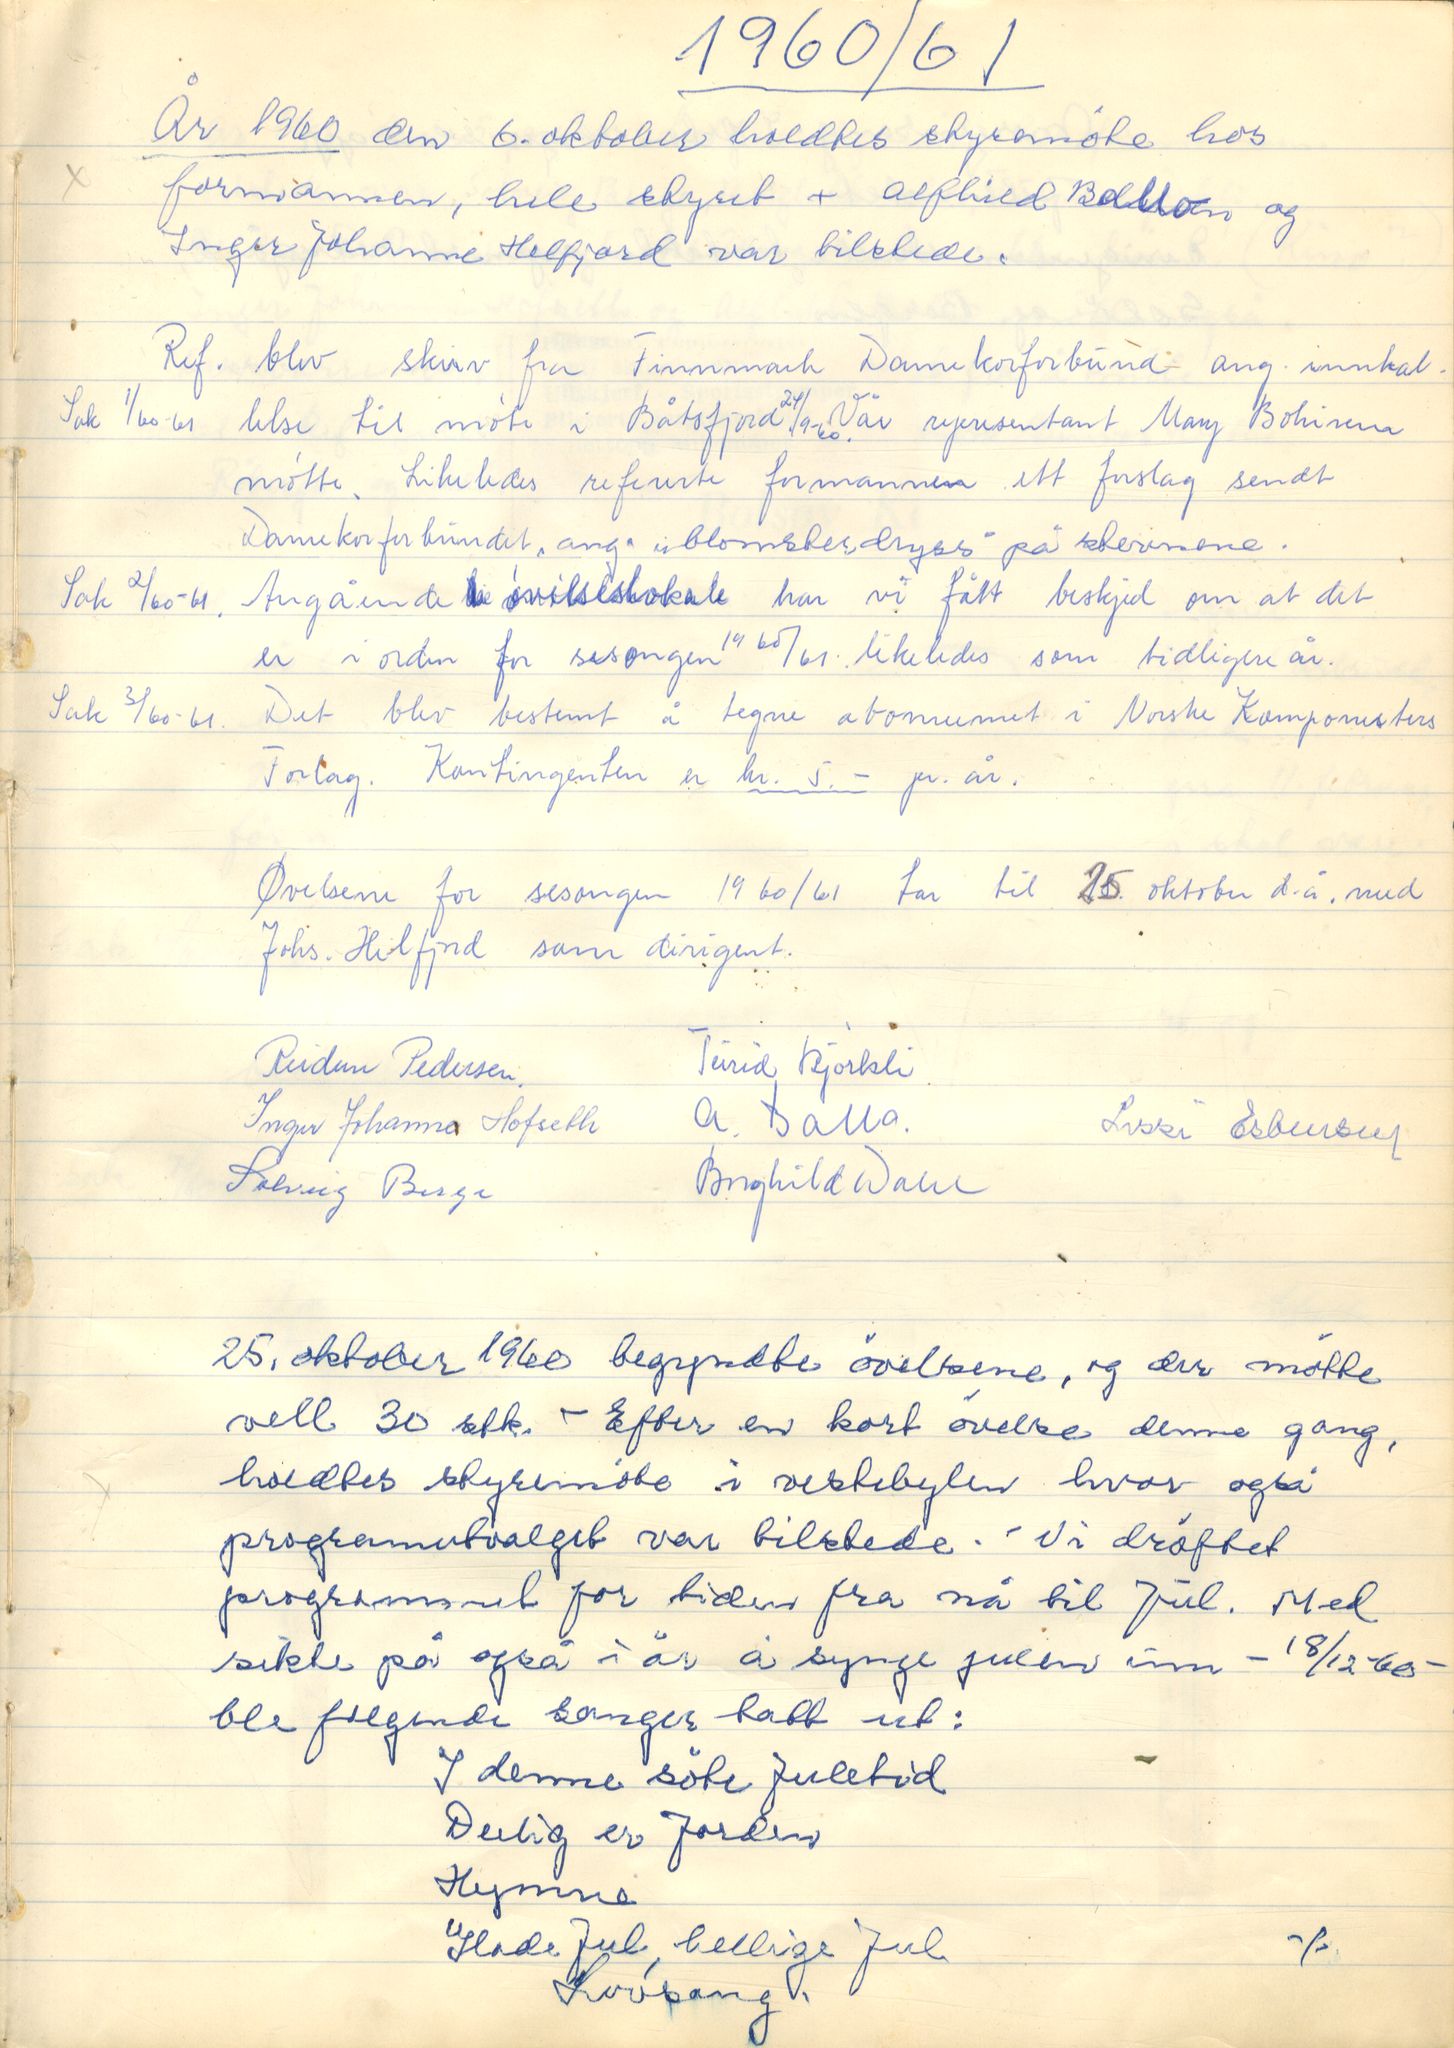 1960/61
År 1960 den 6. oktober holdtes styremöte hos
formannen, hele styret + Alfhild Balla og
Inger Johanne Helfjord var tilstede.
Ref. blev skriv fra Finnmark Damekorforbund ang. innkal-
Sak 1/60-61 lelse til möte i Båtsfjord 24/9-60. Vår representant Mary Bohinen
mötte. Likeledes refererte formannen ett forslag sendt
Damekorforbundet, ang. "blomsterdryss" på stevnene.
Sak 2/60-61. Angående övelseslokale har vi fått beskjed om at det
er i orden for sesongen 1960/61. likeledes som tidligere år.
Sak 3/60-61. Det blev bestemt å tegne abonnemet i Norske Komponisters
Forlag. Kontingenten er kr. 5.- pr. år.
Øvelsene for sesongen 1960/61 tar til 25. oktober d.å. med
Johs. Helfjord som dirigent.
Reidun Pedersen. Turid Björkli
Inger Johanne Hofseth A. Balla. Lissi Esbensen
Solveig Berge Borghild Dahl
25. oktober 1960 begyndte övelsene, og der mötte
vell 30 stk. - Efter en kort övelse denne gang,
holdtes styremöte i vestebylen hvor også
programutvalget var tilstede. - Vi dröftet
programmet for tiden fra nå til Jul. Med
sikte på også i år å synge julen inn - 18/12-60 -
ble fölgende sanger tatt ut:
I denne söte juletid
Deilig er Jorden
Hymne
Glade Jul, hellige Jul